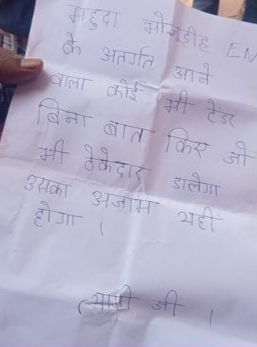 महुदा भोजुडीह EN
के अतर्गत आने
वाला कोई भी टेडर
बिना बात किए जो
भी ठेकेदार डालेगा
उसका अजाम यही
होगा ।
जी ।